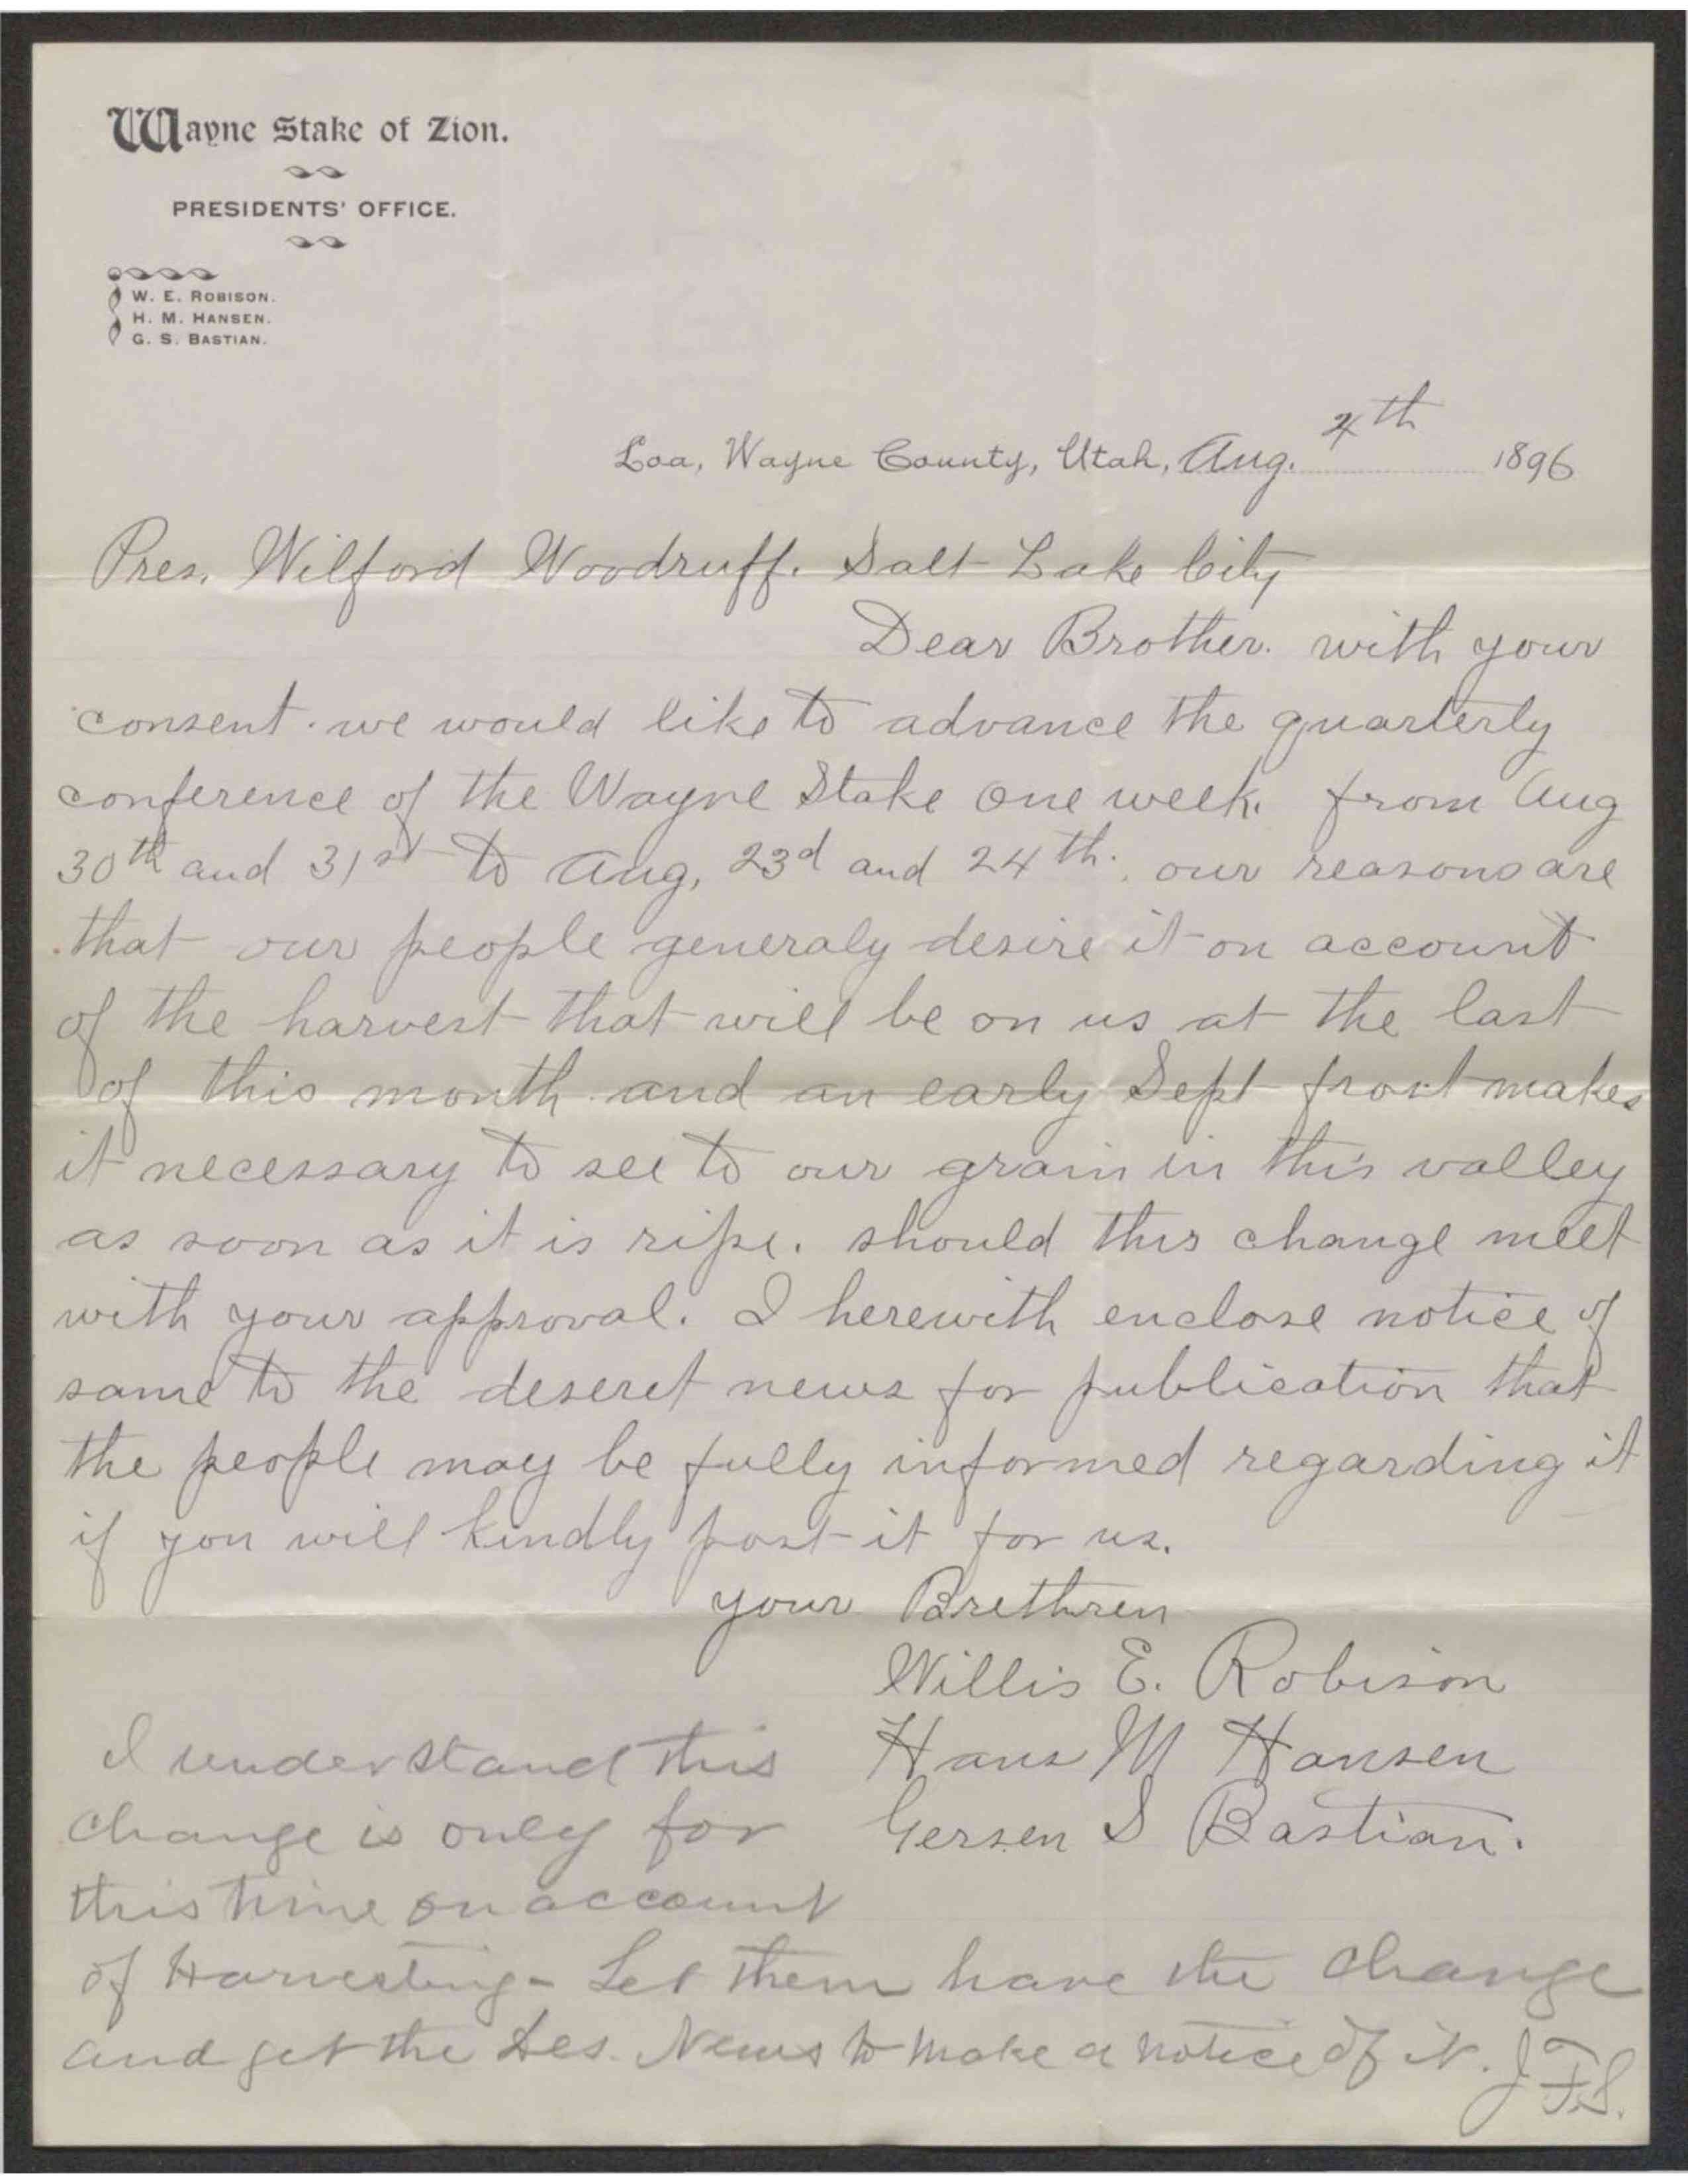 Wayne Stake of Zion.
PRESIDENTS' OFFICE.
W. E. ROBISON.
H. M. HANSEN.
G. S. BASTIAN.
Loa, Wayne County, Utah, Aug. 4th 1896
Pres. Wilford Woodruff. Salt Lake City
Dear Brother. with your
consent. we would like to advance the quarterly
conference of the Wayne Stake one week. from Aug
30th and 31st to Aug, 23d and 24th. our reasons are
that our people generaly desire it on account
of the harvest that will be on us at the last
of this month and an early Sept frost makes
it necessary to see to our grain in this valley
as soon as it is ripe. should this change meet
with your approval. I herewith enclose notice of
same to the deseret news for publication that
the people may be fully informed regarding it
if you will kindly post it for us.
your Brethren
Willis E. Robison
Hans M Hansen
Gersen S Bastian.
I understand this
change is only for
this time on account
of Harvesting - Let them have the change
and get the Des. News to make a notice of it. J F S.